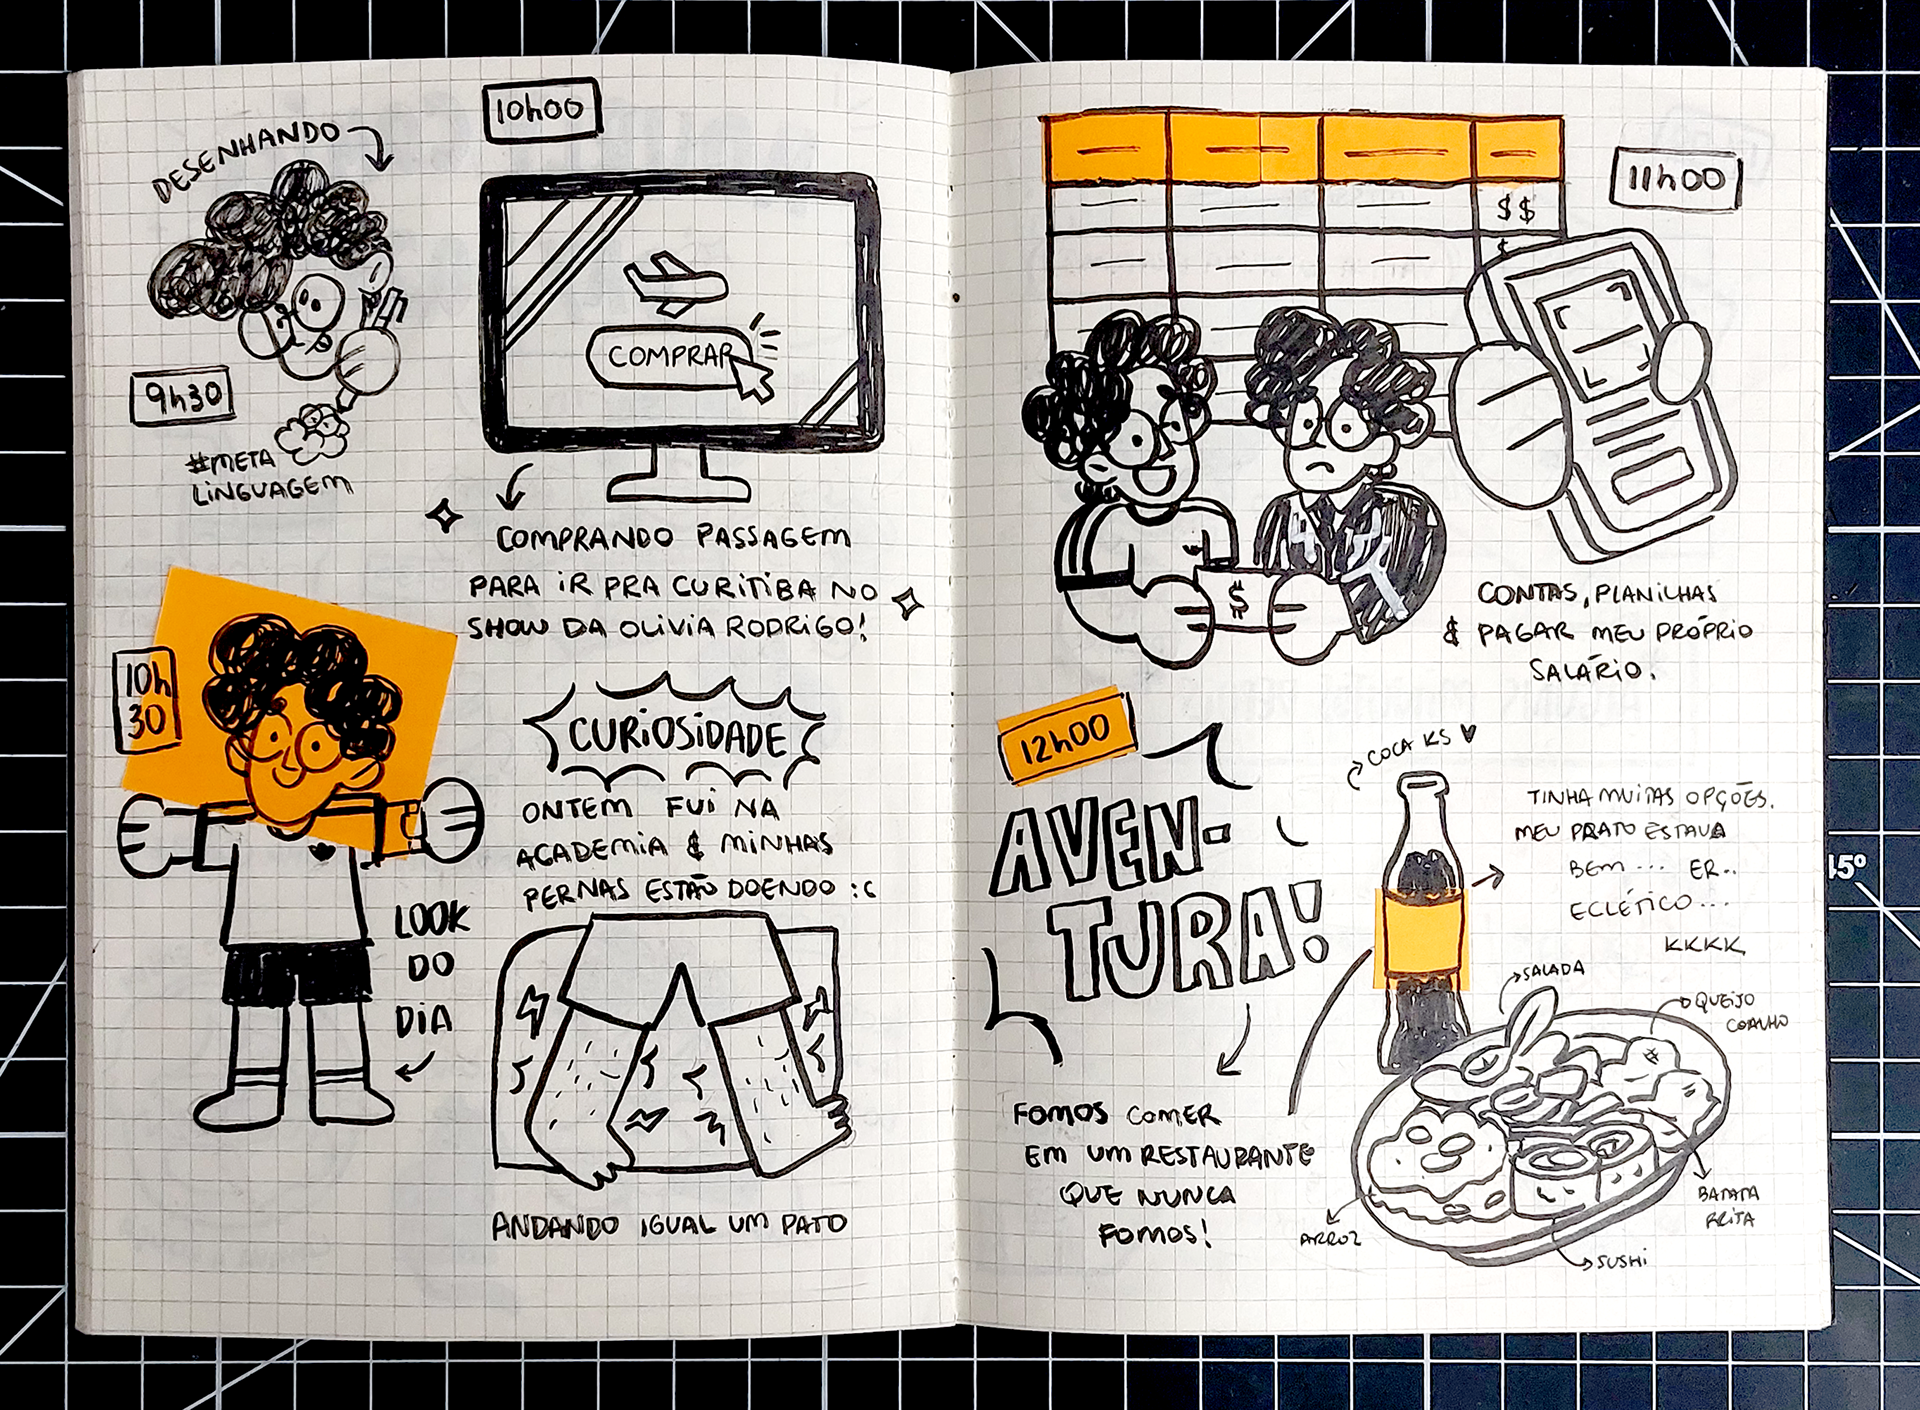 DESENHANDO
9h30
#META
LINGUAGEM
10h00
COMPRAR
COMPRANDO PASSAGEM
PARA IR PRA CURITIBA NO
SHOW DA OLIVIA RODRIGO!
10h
30
LOOK
DO
DIA
CURIOSIDADE
ONTEM FUI NA
ACADEMIA & MINHAS
PERNAS ESTÃO DOENDO :C
ANDANDO IGUAL UM PATO
11h00
$$
$
$
CONTAS, PLANILHAS
& PAGAR MEU PRÓPRIO
SALÁRIO.
12h00
AVEN-
TURA!
FOMOS COMER
EM UM RESTAURANTE
QUE NUNCA
FOMOS!
COCA KS ♥
TINHA MUITAS OPÇÕES.
MEU PRATO ESTAVA
BEM... ER..
ECLÉTICO...
KKKK
SALADA
QUEIJO
COALHO
BATATA
FRITA
SUSHI
ARROZ
45º